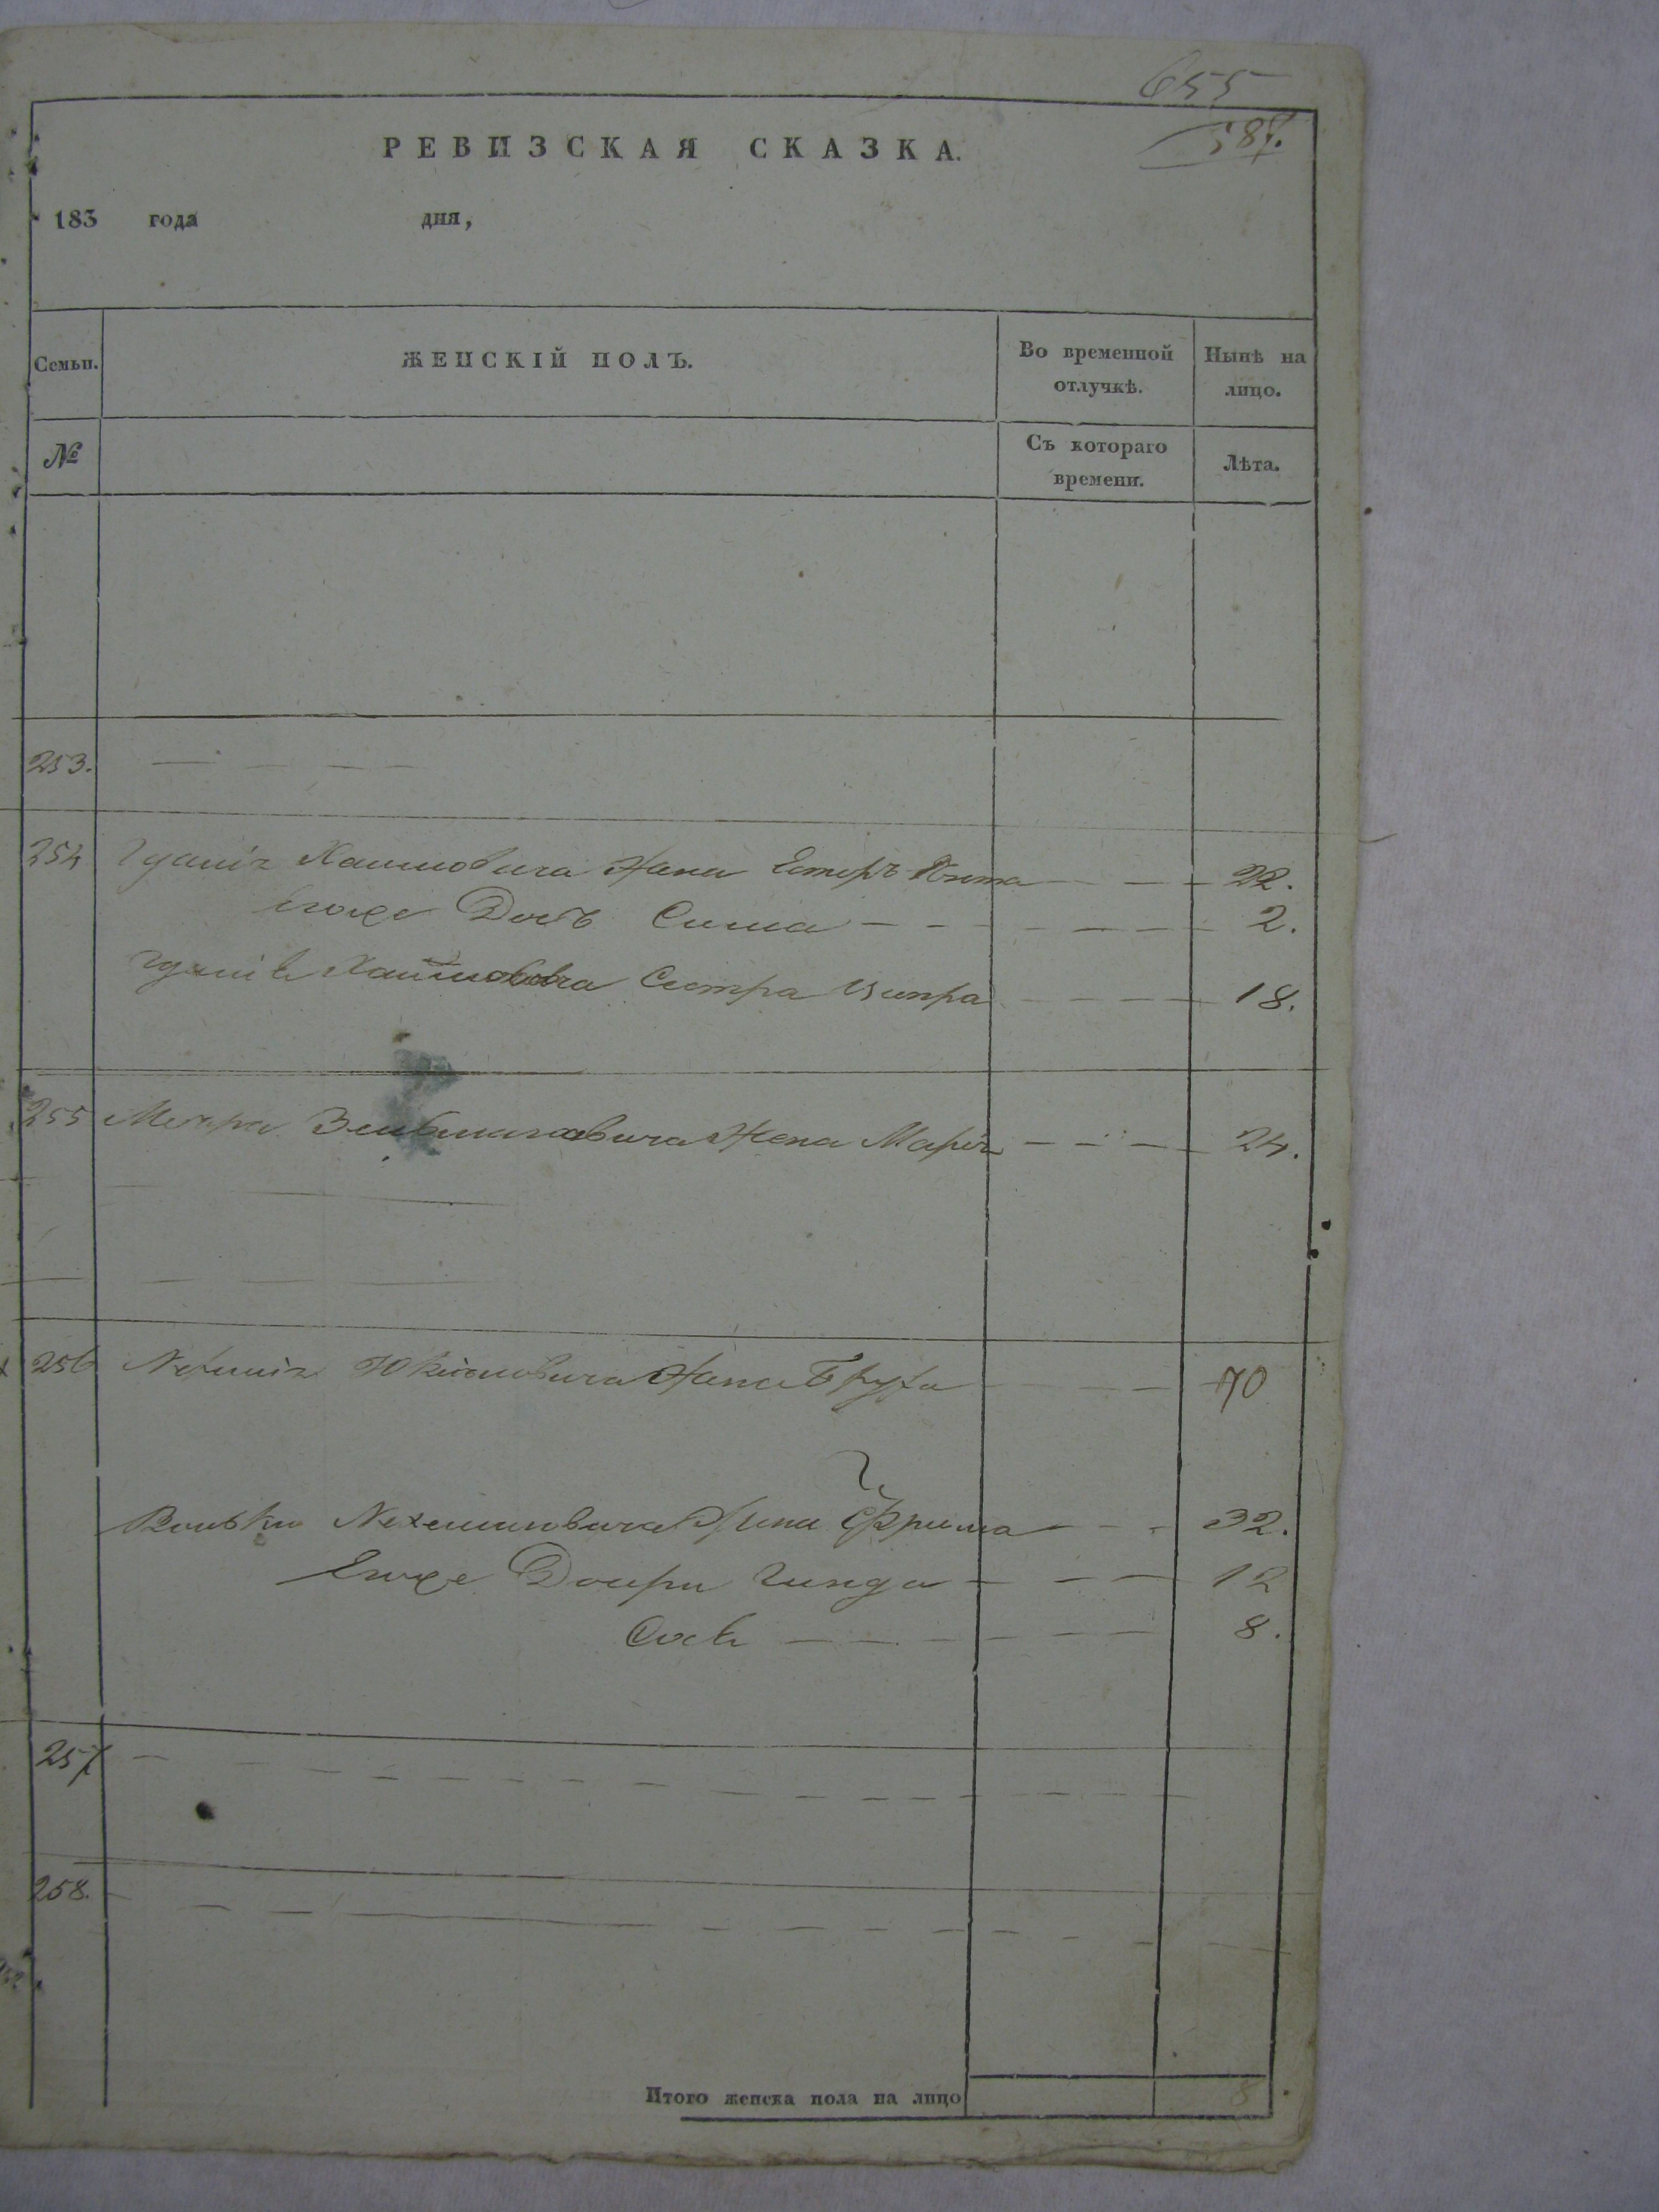 655
587.
РЕВИЗСКАЯ СКАЗКА.
183 года дня,
Семьи. ЖЕНСКІЙ ПОЛЪ. Во временной отлучкѣ. Нынѣ на лицо.
№ Съ котораго времени. Лѣта.
253.
254 Хаимовича Жена Естеръ 22.
Егоже Дочь Сима 2.
Хаимовича Сестра Ципра 18.
255 Меера Зельмановича Жена 24.
256 Жена Бруха 70
Вольки Нехемиовича Жена Фрима 32.
Егоже Дочери Гинда 12
8.
257
258.
Итого женска пола на лицо 8